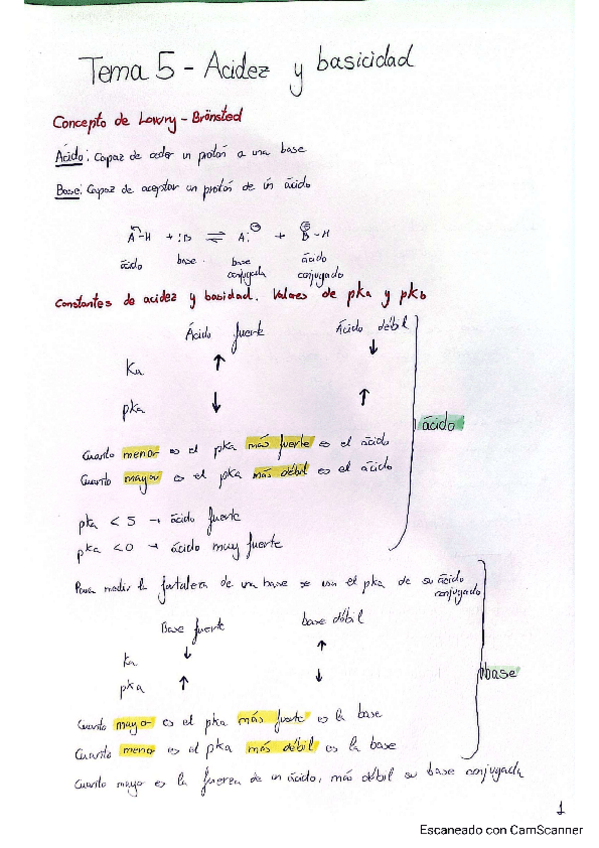 Tema 5 - Acidez y basicidad
Concepto de Lowry - Brönsted
Ácido: Capaz de ceder un protón a una base
Base: Capaz de aceptar un protón de un ácido
A-H + :B ⇌ A:⊖ + B⊕-H
ácido base base conjugada ácido conjugado
Constantes de acidez y basidad. Valores de pka y pkb
Ácido fuerte Ácido débil
Ka ↑ ↓
pka ↓ ↑
ácido
Cuanto menor es el pka más fuerte es el ácido
Cuanto mayor es el pka más débil es el ácido
pka < 5 → ácido fuerte
pka < 0 → ácido muy fuerte
Para medir la fortaleza de una base se usa el pka de su ácido conjugado
Base fuerte base débil
ka ↓ ↑
pka ↑ ↓
base
Cuanto mayor es el pka más fuerte es la base
Cuanto menor es el pka más débil es la base
Cuanto mayor es la fuerza de un ácido, más débil su base conjugada
1
Escaneado con CamScanner